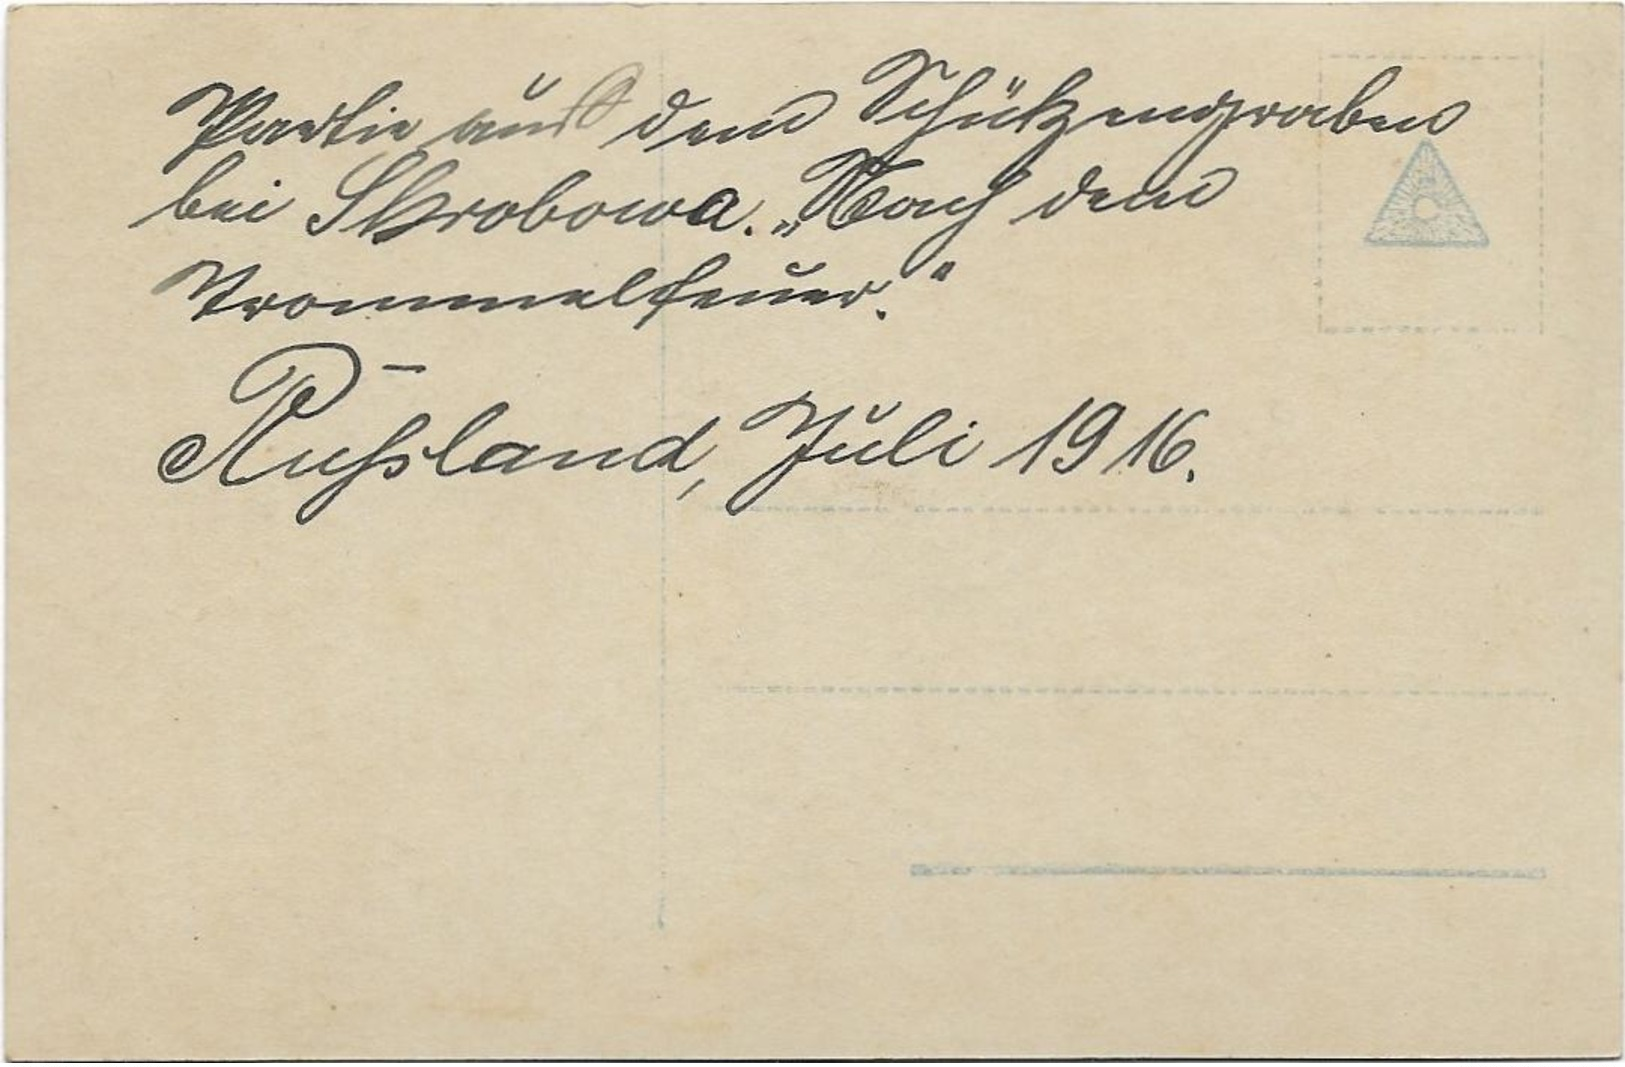 Partie aus dem Schützengraben
bei Skrobowa. „Nach dem
Trommelfeuer.“
Russland, Juli 1916.